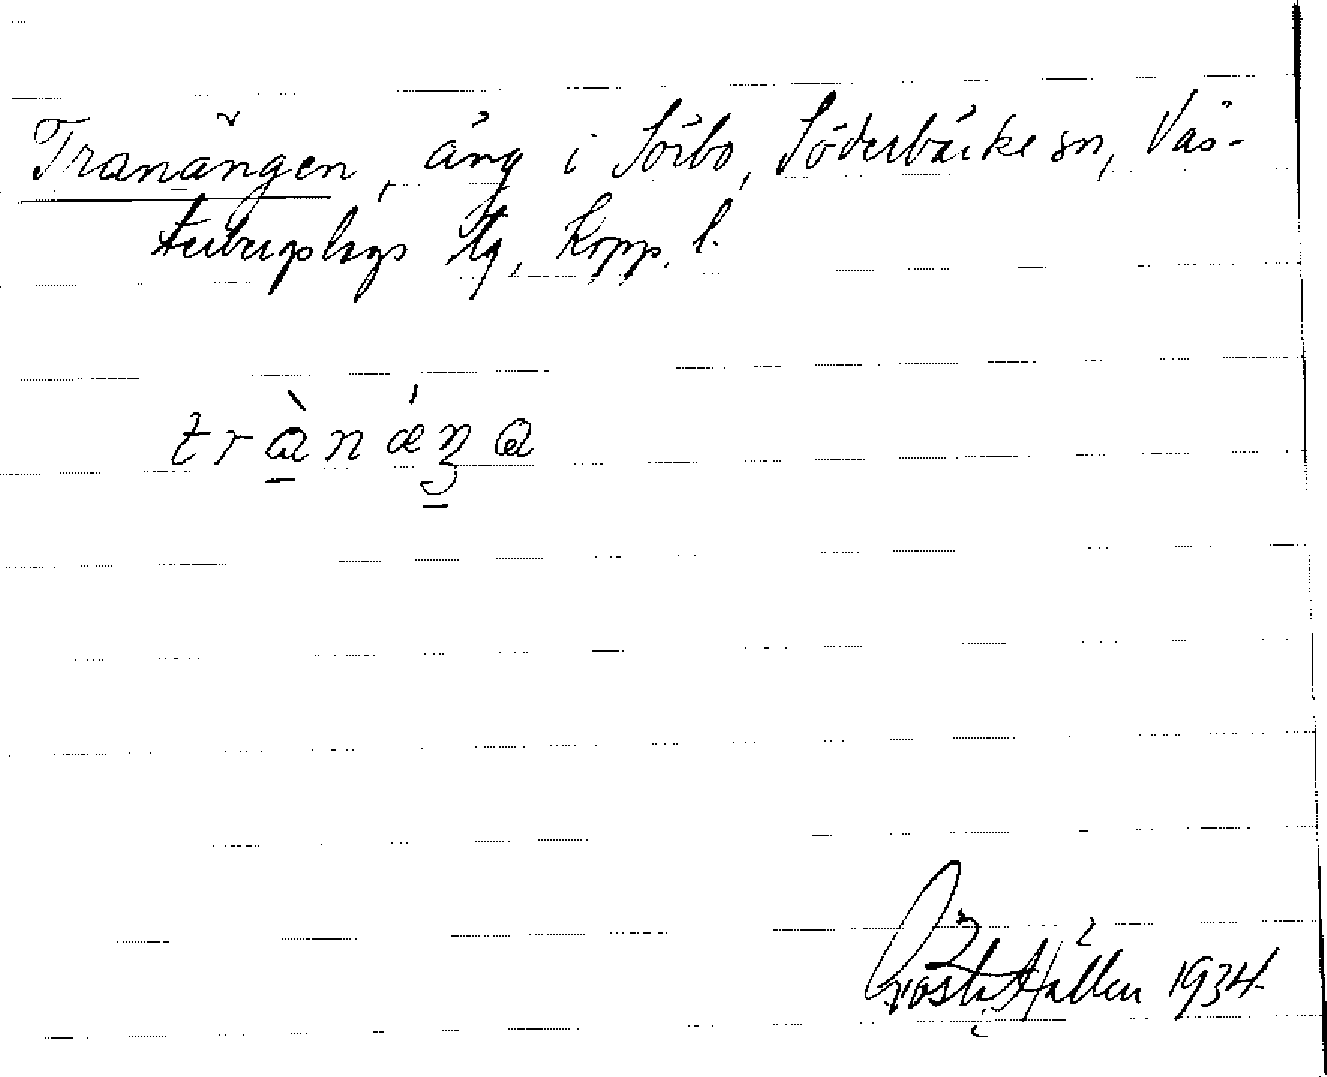 Tranängen, äng i Sörbo, Söderbärke sn, Väs-
terbergslags tg, Kopp. l.
trànǽŋa
Gösta Hållen 1934